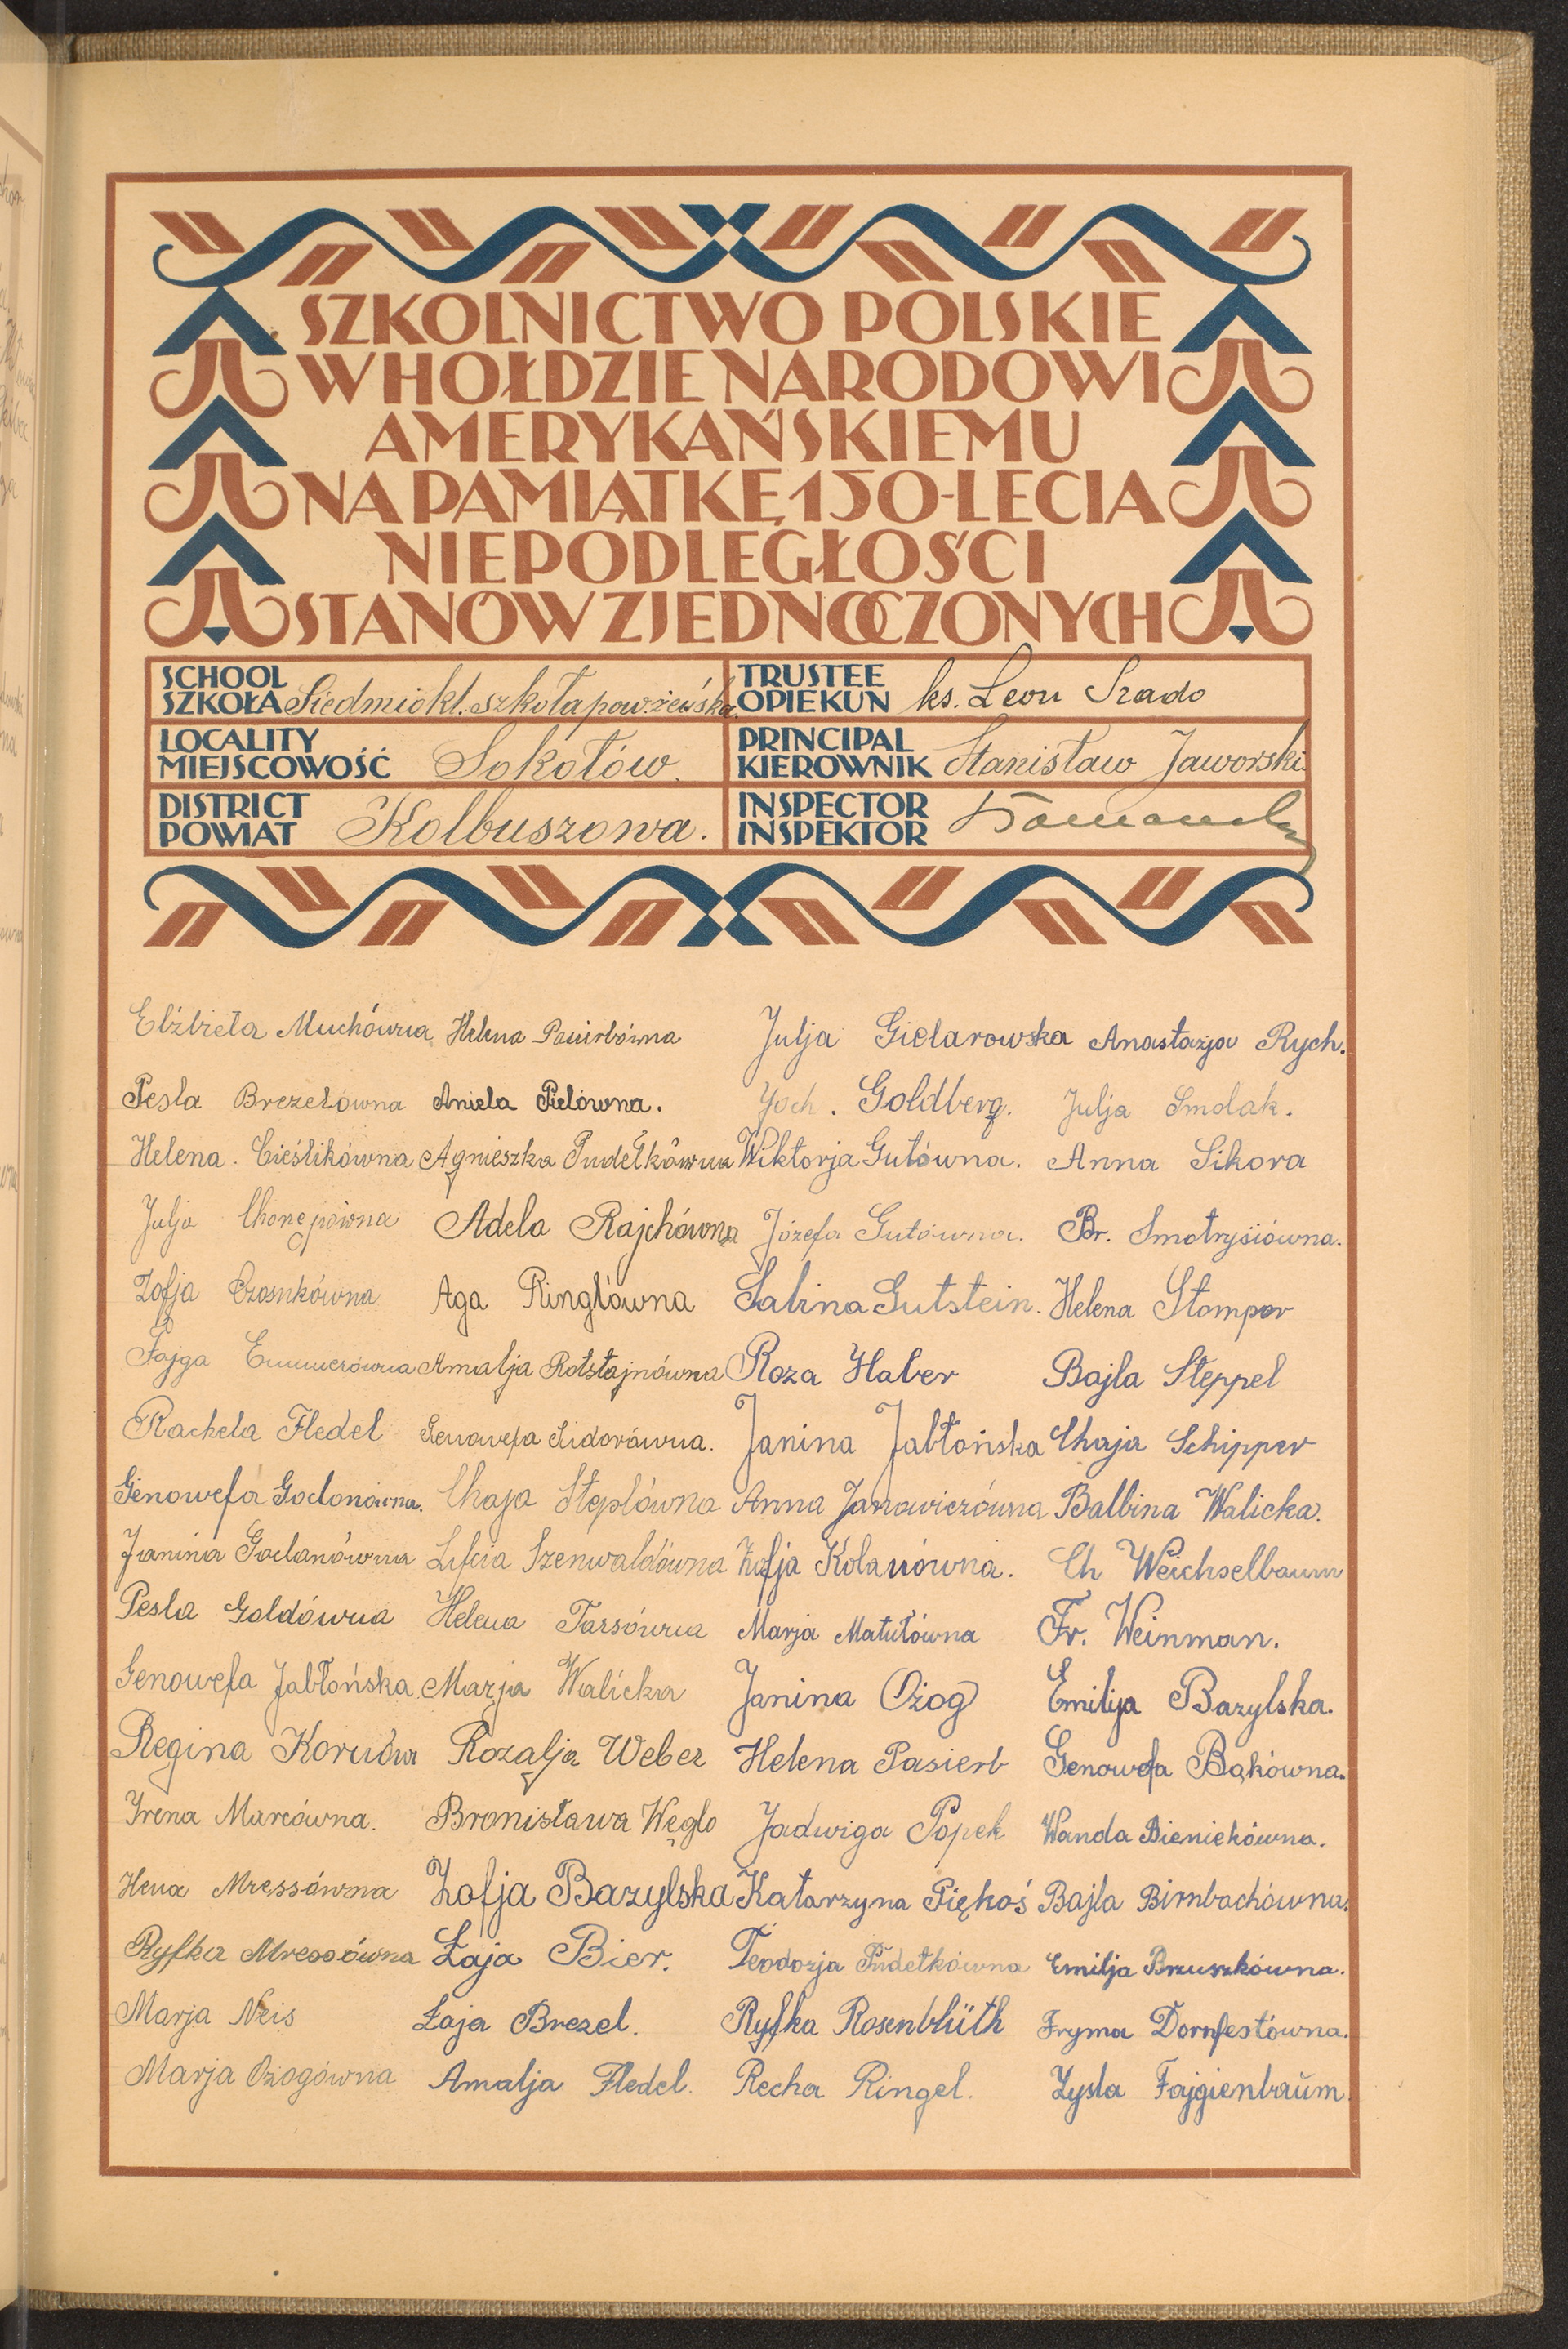 SZKOLNICTWO POLSKIE
W HOŁDZIE NARODOWI
AMERYKAŃSKIEMU
NA PAMIĄTKĘ 150-LECIA
NIEPODLEGŁOŚCI
STANÓW ZJEDNOCZONYCH
SCHOOL
SZKOŁA Siedmiokl. szkoła pow. żeńska.
TRUSTEE
OPIEKUN ks. Leon Szado
LOCALITY
MIEJSCOWOŚĆ Sokołów.
PRINCIPAL
KIEROWNIK Stanisław Jaworski
DISTRICT
POWIAT Kolbuszowa.
INSPECTOR
INSPEKTOR
Elżbieta Muchówna Helena Julja Gielarowska Anastazja Rych.
Pesla Brezelówna Aniela Pielówna. Joch. Goldberg. Julja Smolak.
Helena. Cieślikówna Agnieszka Pudełkówna Wiktorja Gutówna. Anna Sikora
Julja Adela Rajchówna Józefa Gutówna. Br. Smotrysiówna.
Zofja Czosnkówna Aga Ringlówna Sabina Gutstein. Helena Stompor
Fajga Emmerówna Amalja Rotsztajnówna Roza Haber Bajla Steppel
Rachela Fledel Genowefa Sidorówna. Janina Jabłońska Chaja Schipper
Genowefa Godonówna. Chaja Steplówna Anna Janowiczówna Balbina Walicka.
Janina Szenwaldówna Zofja Kolanówna. Ch Weichselbaum
Pesla Goldówna Helena Tarsówna Marja Matutówna Fr. Weinman.
Genowefa Jabłońska Marja Walicka Janina Ożog Emilija Bazylska.
Regina Rozalja Weber Helena Pasierb Genowefa Bąkówna.
Yrena Marcówna. Bronisława Węglo Jadwiga Popek Wanda Bieniekówna.
Hena Mressówna Zofja Bazylska Katarzyna Piękoś Bajla Birnbachówna.
Ryfka Mressówna Łaja Bier. Teodozja Pudełkówna Emilja Bruszkówna.
Marja Neis Łaja Brezel. Ryfka Rosenblüth Fryma Dornfestówna.
Marja Ożogówna Amalja Fledel. Recha Ringel. Zysla Fajgienbaŭm